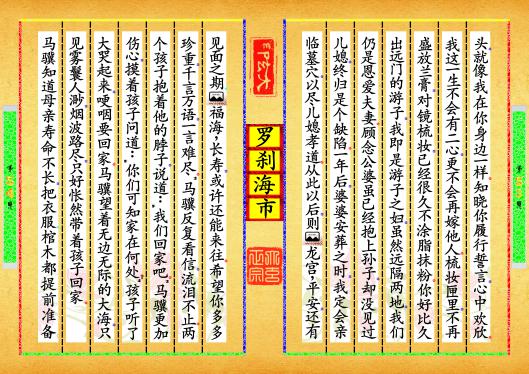 头就像我在你身边一样知晓你履行誓言心中欢欣
我这一生不会有二心更不会再嫁他人梳妆匣里不再
盛放兰膏对镜梳妆已经很久不涂脂抹粉你好比久
出远门的游子我即是游子之妇虽然远隔两地我们
仍是恩爱夫妻顾念公婆虽已经抱上孙子却没见过
儿媳终归是个缺陷一年后婆婆安葬之时我定会亲
临墓穴以尽儿媳孝道从此以后则龙宫,平安还有
罗刹海市
见面之期福海,长寿或许还能来往希望你多多
珍重千言万语一言难尽.马骥反复看信流泪不止两
个孩子抱着他的脖子说道:我们回家吧.马骥更加
伤心摸着孩子问道:你们可知家在何处,孩子听了
大哭起来哽咽要回家马骥望着无边无际的大海只
见雾鬟人渺烟波路尽只好怅然带着孩子回家
马骥知道母亲寿命不长把衣服棺木都提前准备